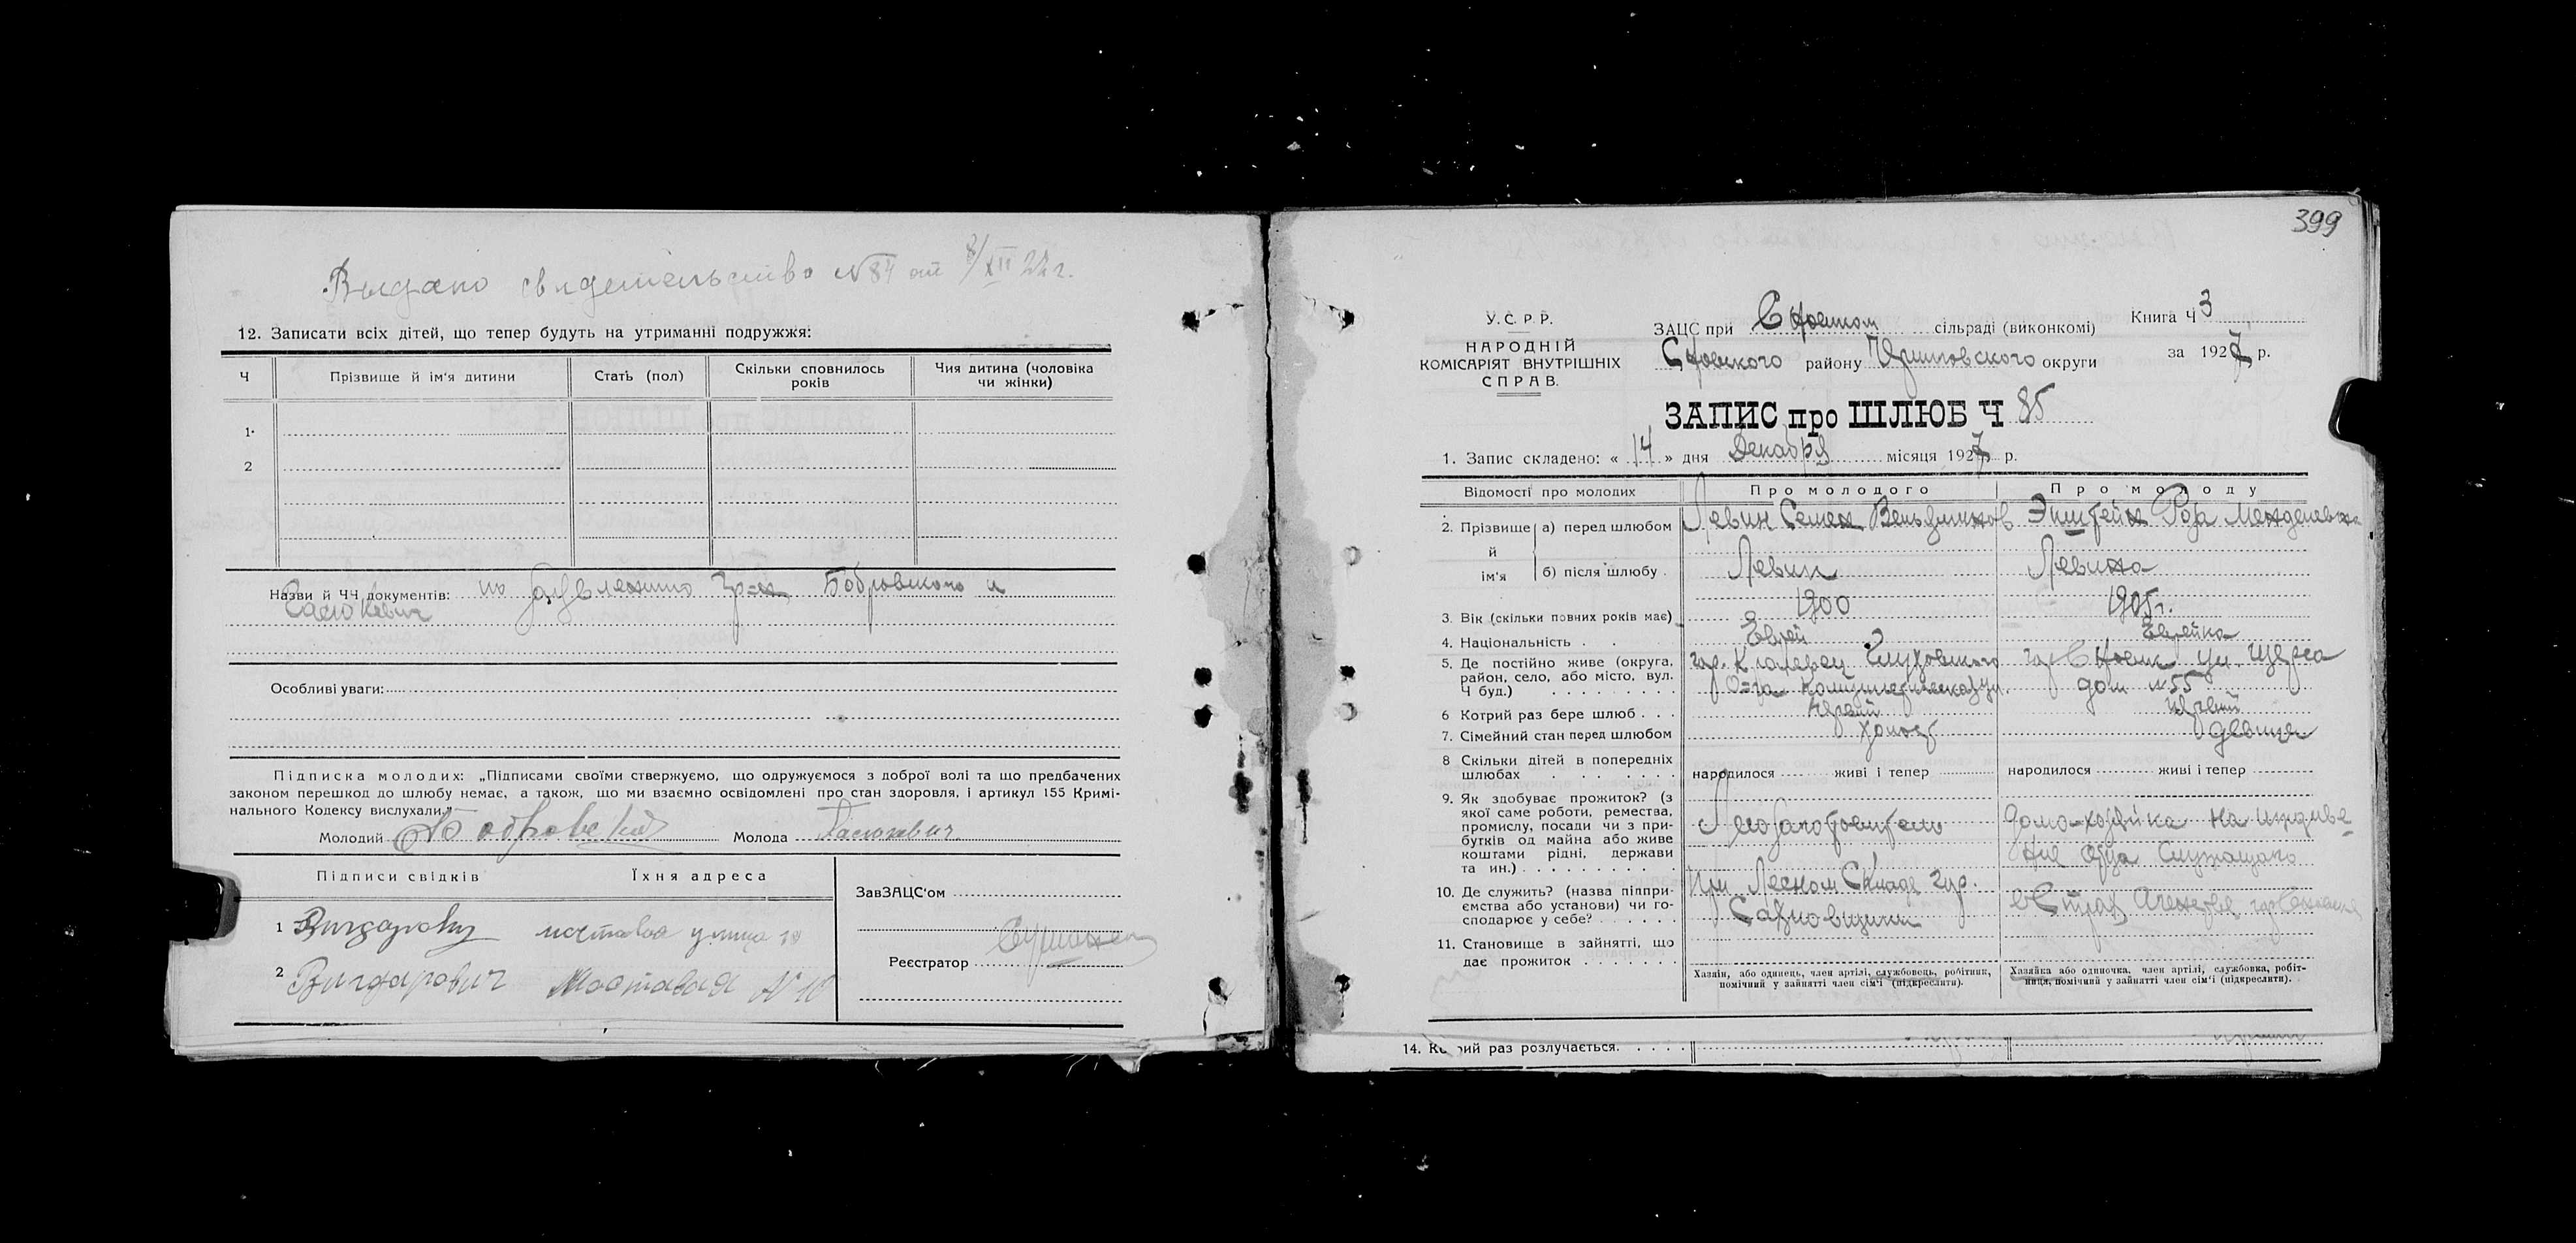 Выдано свидетельство №84 от 8/XII 27 г.
12. Записати всіх дітей, що тепер будуть на утриманні подружжя:
Ч Прізвище й ім'я дитини Стать (пол) Скільки сповнилось років Чия дитина (чоловіка чи жінки)
1
2
Назви й ЧЧ документів: по заявлению гр-н Бобровского и
Особливі уваги:
Підписка молодих: „Підписами своїми стверджуємо, що одружуємося з доброї волі та що предбачених
законом перешкод до шлюбу немає, а також, що ми взаємно освідомлені про стан здоровля, і артикул 155 Кримі-
нального Кодексу вислухали."
Молодий Бобровский Молода
Підписи свідків Їхня адреса
1 мостовая улица 10
2 Вигдорович Мостовая №10
ЗавЗАЦС'ом
Реєстратор
399
У.С.Р.Р.
НАРОДНІЙ
КОМІСАРІЯТ ВНУТРІШНІХ
СПРАВ.
ЗАЦС при Сновском сільраді (виконкомі)
Сновского району округи
Книга Ч 3
за 1927 р.
ЗАПИС про ШЛЮБ Ч 85
1. Запис складено: « 14 » дня Декабря місяця 1927 р.
Відомості про молодих Про молодого Про молоду
2. Прізвище й ім'я а) перед шлюбом Левин Семен Эпштейн Роза Менделевна
б) після шлюбу Левин Левина
3. Вік (скільки повних років має) 1900 1905 г.
4. Національність Еврей Еврейка
5. Де постійно живе (округа, район, село, або місто, вул. Ч буд.) гор. Кролевец Глуховского гор Сновск ул. Щорса дом №55
6 Котрий раз бере шлюб первый первый
7. Сімейний стан перед шлюбом холост девица
8 Скільки дітей в попередніх шлюбах народилося живі і тепер народилося живі і тепер
9. Як здобуває прожиток? (з якої саме роботи, ремества, промислу, посади чи з при-бутків од майна або живе коштами рідні, держави та ин.) Лесозаготовитель домо-хозяйка на иждиве-ние отца служащаго
10. Де служить? (назва піппри-ємства або установи) чи го-сподарює у себе? при Лесном Складе гор. Сахновщини
11. Становище в зайнятті, що дає прожиток
Хазяїн, або одинець, член артілі, службовець, робітник, помічний у зайнятті член сім'ї (підкреслити).
Хазяйка або одиночка, член артілі, службовка, робіт-ниця, помічний у зайнятті член сім'ї (підкреслити).
14. Котрий раз розлучається